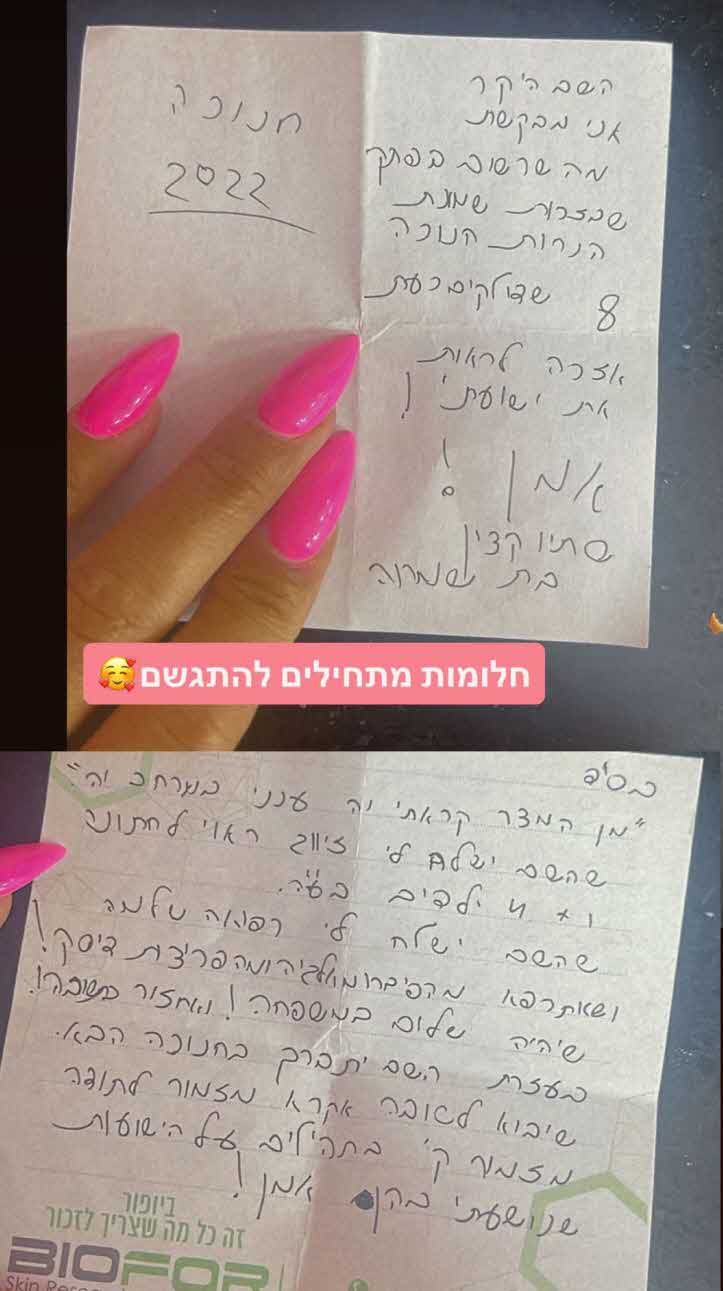 השם היקר
אני מבקשת
מה שרשום בפתק
שבזכות שמונת
הנרות חנוכה
8 שדולקים כעת
אזכה לראות
את ישועתי!
אמן!
סתיו קצין
בת
חנוכה
2022
חלומות מתחילים להתגשם🥰
בס"ד
"מן המצר קראתי יה ענני במרחב יה"
שהשם ישלח לי זיווג ראוי לחתונה
ו+ 4 ילדים בע"ה.
שהשם ישלח לי רפואה שלמה
ושאתרפא מהפיברומיאלגיה ומהפריצת דיסק!
שיהיה שלום במשפחה! ואחזור בתשובה!
בעזרת השם יתברך בחנוכה הבא.
שיבוא לטובה אקרא מזמור לתודה
מזמור ק' בתהילים על הישועות
שנושעתי בהן אמן!
ביופור
זה כל מה שצריך לזכור
BIOFOR
Skin